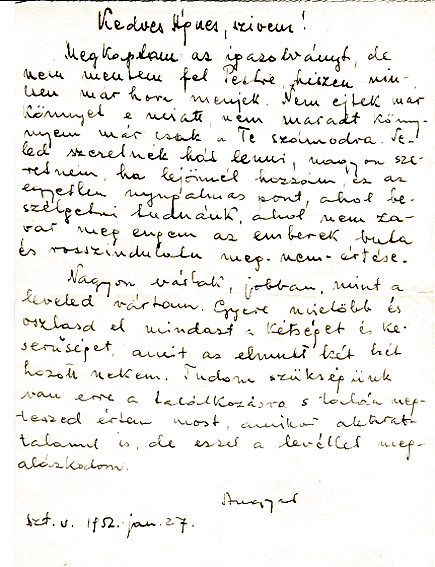 Kedves Ágnes, szivem!
Megkaptam az igazolványt, de
nem mentem fel Pestre, hiszen nin-
csen már hova menjek. Nem ejtek már
könnyet e miatt, nem maradt köny-
nyem már csak a Te számodra. Ve-
led szeretnék hát lenni, nagyon sze-
retném, ha lejönnél hozzám, ez az
egyetlen nyugalmas pont, ahol be-
szélgetni tudnánk, ahol nem za-
var meg engem az emberek buta
és rosszindulatu meg-nem-értése.
Nagyon vártak, jobban, mint a
leveled vártam. Gyere mielőbb és
oszlasd el mindazt a kétséget és ke-
serüséget, amit az elmult két hét
hozott nekem. Tudom szükségünk
van erre a találkozásra s talán meg-
teszed értem most, amikor
is, de ezzel a levéllel meg-
alázkodom.
Angyal
Szt. v. 1952. jan. 27.